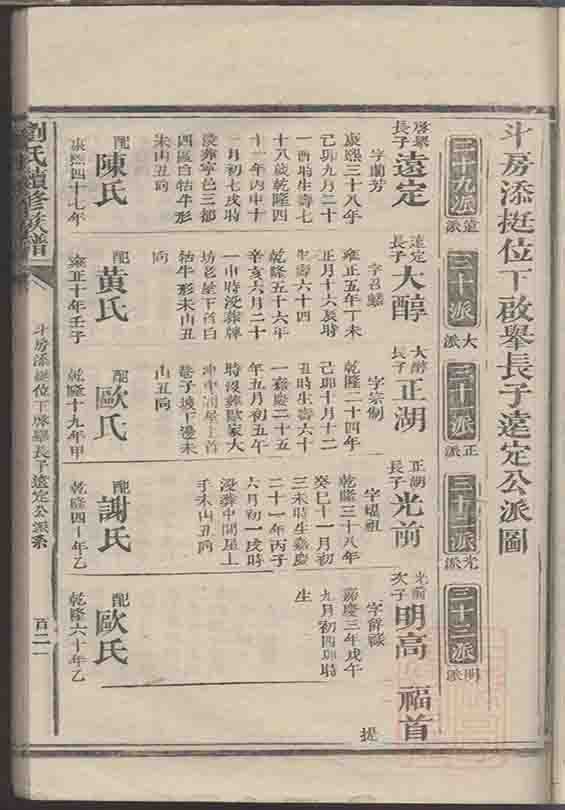 斗房添挺位下啟舉長子遠定公派圖
二十九派
遠派
三十派
大派
三十一派
正派
三十二派
光派
三十三派
明派
啓舉
長子
遠定
字蘭芳
康熙三十八年
己卯九月二十
一酉時生壽七
十八歲乾隆四
十一年丙申十
一月初七戌時
沒葬寧邑三都
四區白牯牛形
未山丑向
配
陳氏
康熙四十七年
遠定
長子
大醇
字召蟠
雍正五年丁未
正月十六辰時
生壽六十四
乾隆五十六年
辛亥六月二十
一申時沒葬牌
坊老屋下首白
牯牛形未山丑
向
配
黃氏
雍正十年壬子
大醇
長子
正湖
字宗制
乾隆二十四年
己卯十月十二
丑時生壽六十
一嘉慶二十五
年五月初五午
時沒葬歐家大
屋上首
巷子塊下邊未
山丑向
配
歐氏
乾隆十九年甲
正湖
長子
光前
字耀祖
乾隆三十八年
癸巳十一月初
三未時生嘉慶
二十一年丙子
六月初一戌時
沒葬中間屋上
手未山丑向
配
謝氏
乾隆四十年乙
光前
次子
明高
字
嘉慶三年戊午
九月初四卯時
生
配
歐氏
乾隆六十年乙
福首
提
劉氏續修族譜
斗房添挺位下啟舉長子遠定公派系
百二一